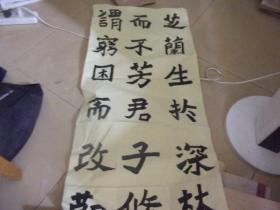 芝蘭生扵深林
而不芳君子
謂窮困而改